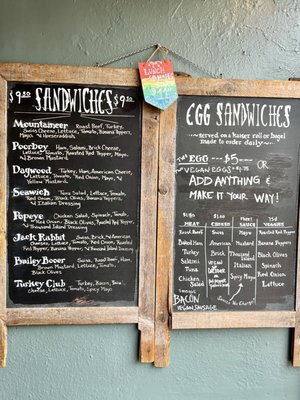 $9.50 SANDWICHES $9.50
Mountaineer Roast Beef, Turkey,
Swiss Cheese, Lettuce, Tomato, Banana Peppers,
Mayo & Horseradish
Poorboy Ham, Salami, Brick Cheese,
Lettuce, Tomato, Red Onion,
Roasted Red Topper, Mayo
& Brown Mustard
Dagwood Turkey, Ham, American Cheese,
Lettuce, Tomato, Red Onion, Mayo &
Yellow Mustard
Seawich Tuna Salad, Lettuce, Tomato,
Red Onion, Black Olives, Banana Peppers
& Italian Dressing
Popeye Chicken Salad, Spinach, Tomato,
Red Onion, Black Olives, Roasted Red Topper,
Thousand Island Dressing
Jack Rabbit Swiss, & American
Cheeses, Lettuce, Tomato, Red Onion, Roasted
Red Topper, Banana Topper & Thousand Island Dressing
Bailey Booer Swiss, Roast Beef, Ham,
Brown Mustard, Lettuce, Tomato,
Black Olives
Turkey Club Turkey, Bacon, Swiss
Cheese, Lettuce, Tomato, Spicy Mayo
LUNCH
EGG SANDWICHES
served on a kaiser roll or bagel
made to order daily
EGG $5
VEGAN EGG
OR
ADD ANYTHING &
MAKE IT YOUR WAY!
MEAT
Roast Beef
Baked Ham
Turkey
Salami
Tuna
Chicken
Salad
BACON
VEGAN SAUSAGE
CHEESE
Swiss
American
Brick
SAUCE
Mayo
Mustard
Thousand
Island
Italian
Spicy Mayo
VEGGIES
Roasted Red Topper
Banana Peppers
Black Olives
Spinach
Red Onion
Lettuce